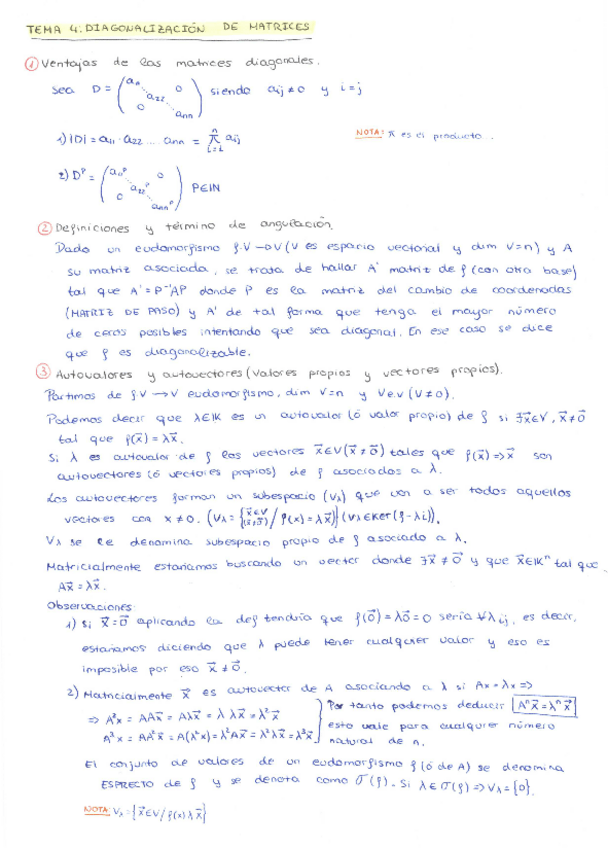 TEMA 4: DIAGONALIZACIÓN DE MATRICES
① Ventajas de las matrices diagonales.
Sea D = (a₁₁ a₂₂ ... aₙₙ 0 0) siendo aij ≠ 0 y i = j
1) |D| = a₁₁ · a₂₂ ... aₙₙ = π aij
NOTA: π es el producto.
2) Dᵖ = (a₁₁ᵖ a₂₂ᵖ ... aₙₙᵖ 0 0) P∈IN
② Definiciones y término de angulación.
Dado un eudomorfismo f: V → V (V es espacio vectorial y dim V=n) y A
su matriz asociada, se trata de hallar A' matriz de f (con otra base)
tal que A' = P⁻¹AP donde P es la matriz del cambio de coordenadas
(MATRIZ DE PASO) y A' de tal forma que tenga el mayor número
de ceros posibles intentando que sea diagonal. En ese caso se dice
que f es diagonalizable.
③ Autovalores y autovectores (Valores propios y vectores propios).
Partimos de f: V → V eudomorfismo, dim V=n y V e.v (V ≠ 0).
Podemos decir que λ∈IK es un autovalor (ó valor propio) de f si ∃x⃗∈V, x⃗≠0⃗
tal que f(x⃗) = λx⃗.
Si λ es autovalor de f los vectores x⃗∈V (x⃗ ≠ 0⃗) tales que f(x⃗) => x⃗ son
autovectores (ó vectores propios) de f asociados a λ.
Los autovectores forman un subespacio (Vλ) que van a ser todos aquellos
vectores con x ≠ 0. (Vλ = {x⃗∈V / f(x) = λx⃗}) (Vλ ∈ Ker (f - λi)).
Vλ se le denomina subespacio propio de f asociado a λ.
Matricialmente estaríamos buscando un vector donde ∃x⃗ ≠ 0⃗ y que x⃗∈IKⁿ tal que
Ax⃗ = λx⃗.
Observaciones
1) Si x⃗ = 0⃗ aplicando la def tendría que f(0⃗) = λ0⃗ = 0 sería ∀λij, es decir,
estaríamos diciendo que λ puede tener cualquier valor y eso es
imposible por eso x⃗ ≠ 0⃗.
2) Matricialmente x⃗ es autovector de A asociando a λ si Ax = λx =>
=> A²x = AAx⃗ = Aλx⃗ = λ λx⃗ = λ²x⃗
A³x = AA²x⃗ = A(λ²x) = λ²Ax⃗ = λ²λx⃗ = λ³x⃗
Por tanto podemos deducir Aⁿx⃗ = λⁿx⃗
esto vale para cualquier número
natural de n.
El conjunto de valores de un eudomorfismo f (ó de A) se denomina
ESPRECTO de f y se denota como σ(f). Si λ ∈ σ(f) => Vλ = {0}.
NOTA: Vλ = {x⃗∈V / f(x) λ x⃗}